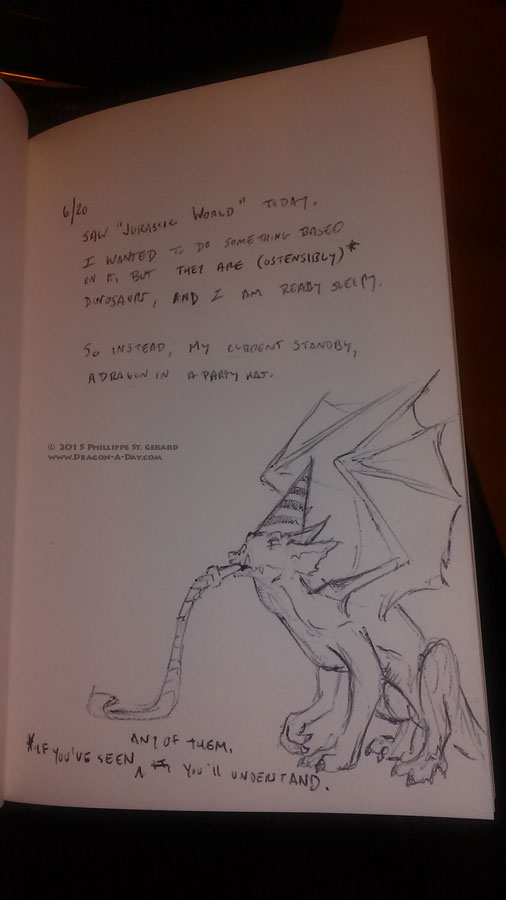 6/20
SAW "JURASSIC WORLD" TODAY.
I WANTED TO DO SOMETHING BASED
ON IT, BUT THEY ARE (OSTENSIBLY)*
DINOSAURS, AND I AM READY SLEEPY.
SO INSTEAD, MY CURRENT STANDBY,
A DRAGON IN A PARTY HAT.
© 2015 PHILLIPPE ST. GERARD
WWW.DRAGON-A-DAY.COM
ANY OF THEM,
*IF YOU'VE SEEN ^ YOU'LL UNDERSTAND.